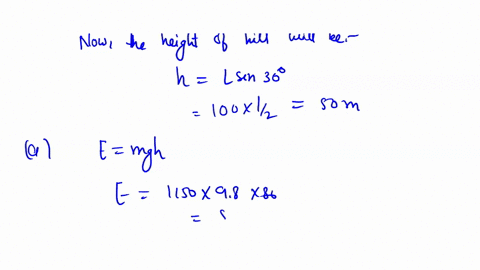 Now, the height of hill will be:-
h = L sin 30°
= 100 x 1/2 = 50m
(a) E = mgh
E = 1150 x 9.8 x 50
=